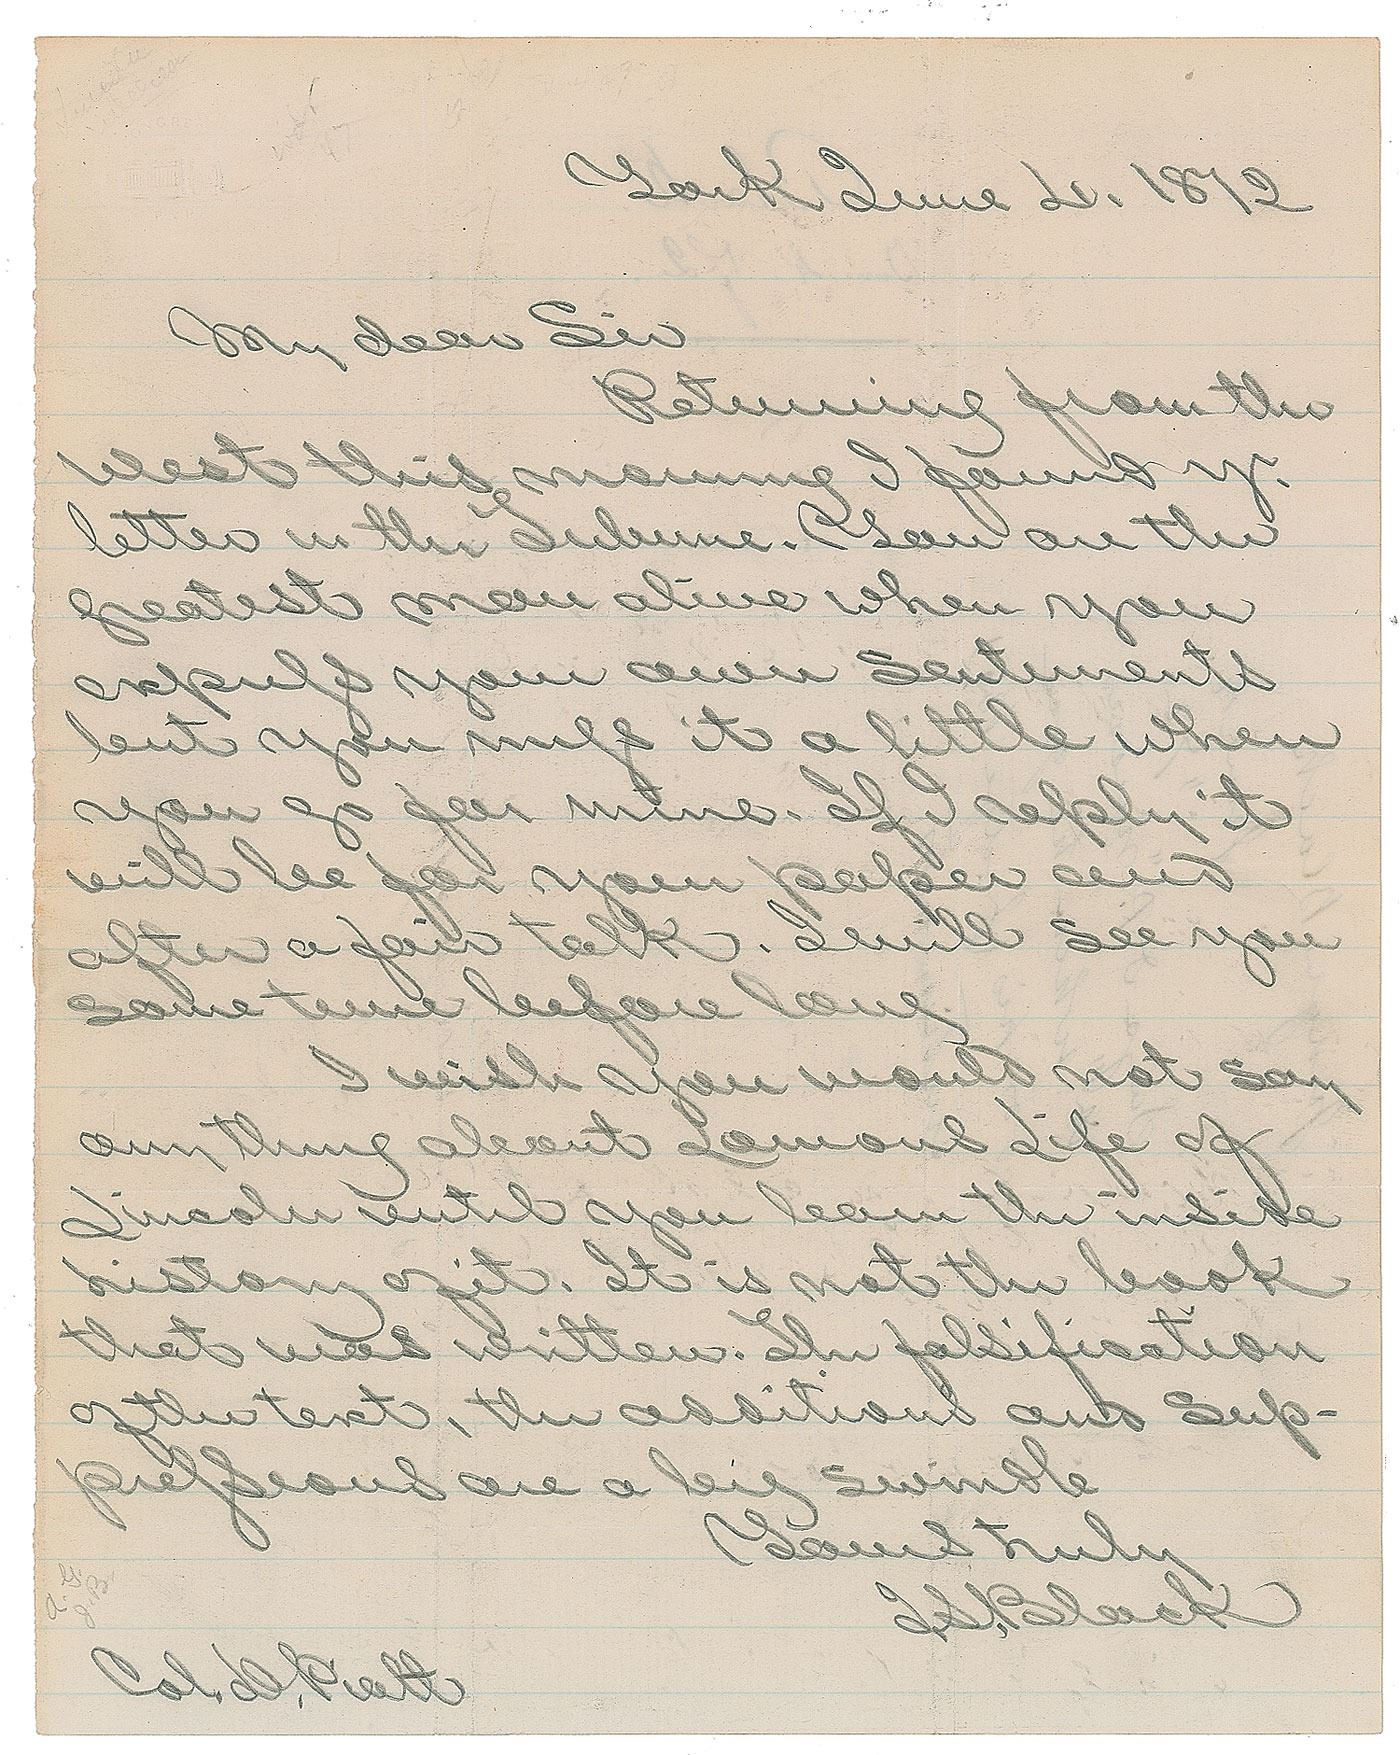 York June 4. 1872
My dear Sir
Returning from the
West this morning I found yr.
letter in the Tribune. You are the
greatest man alive when you
express your own sentiments
but you miss it a little when
you go for mine. If I reply it
will be for your paper and
after a fair talk. I will see you
some time before long
I wish you would not say
any thing about Lamons Life of
Lincoln until you learn the inside
history of it. It is not the book
that was written. The falsification
of the text, the additions and sup-
pressions are a big swindle
Yours truly
J. S. Black
Col. D. Piatt